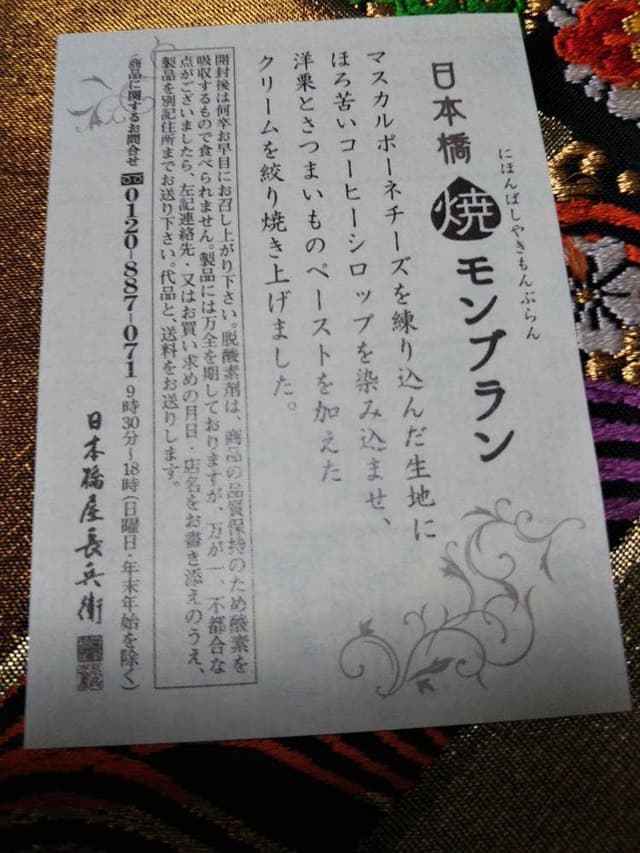 にほんばしやきもんぶらん
日本橋焼モンブラン
マスカルポーネチーズを練り込んだ生地に
ほろ苦いコーヒーシロップを染み込ませ、
洋栗とさつまいものペーストを加えた
クリームを絞り焼き上げました。
開封後は何卒お早目にお召し上がり下さい。脱酸素剤は、商品の品質保持のため酸素を
吸収するもので食べられません。製品には万全を期しておりますが、万が一、不都合な
点がございましたら、左記連絡先・又はお買い求めの月日・店名をお書き添えのうえ、
製品を別記住所までお送り下さい。代品と、送料をお送りします。
商品に関するお問合せ 0120-887-071 9時30分~18時(日曜日・年末年始を除く)
日本橋屋長兵衛